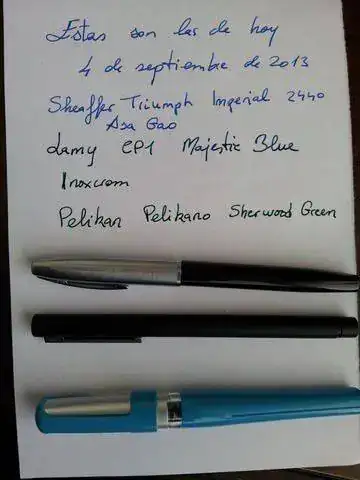 Estas son las de hoy
4 de septiembre de 2013
Sheaffer Triumph Imperial 2440
Asa Gao
Lamy CP1 Majestic Blue
Inoxcrom
Pelikan Pelikano Sherwood Green